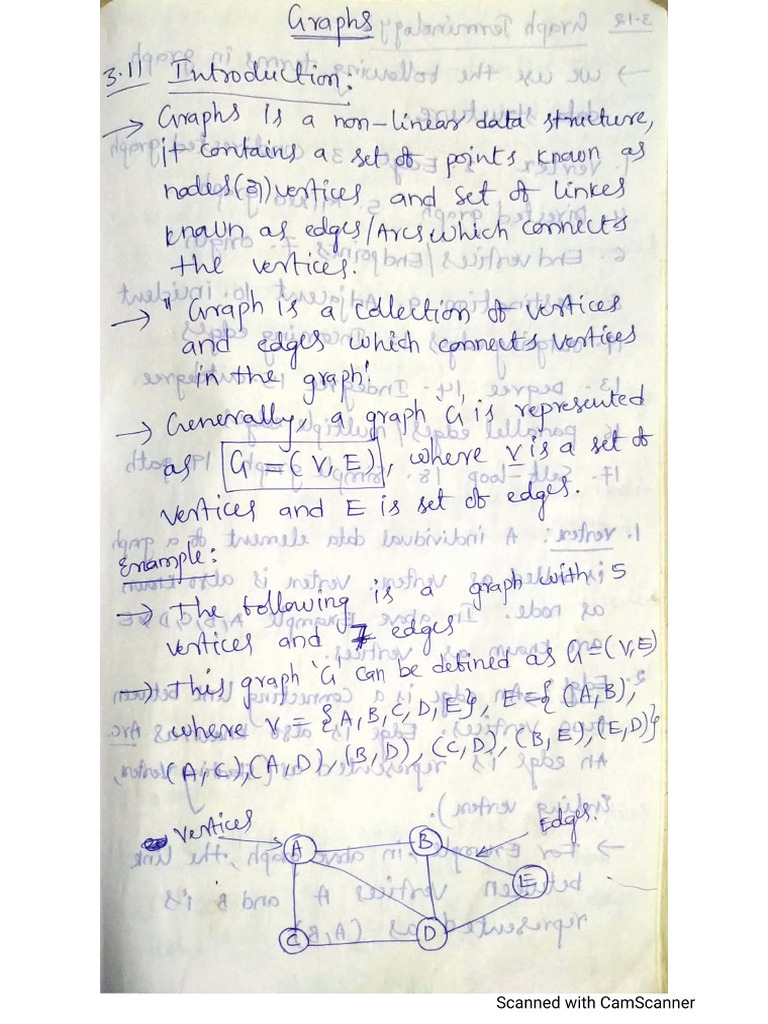 Graphs
3.1) Introduction:
→ Graphs is a non-linear data structure,
it contains a set of points known as
nodes(or)vertices and set of linkes
known as edges/Arcs which connects
the vertices.
→ "Graph is a collection of vertices
and edges which connects vertices
in the graph!
→ Generally, a graph 'G' is represented
as G=(V,E), where V is a set of
vertices and E is set of edges.
Example:
→ The following is a graph with 5
vertices and 7 edges
→ This graph 'G' can be defined as G=(V,E)
where V={A,B,C,D,E}, E={(A,B),
(A,C),(A,D),(B,D),(C,D),(B,E),(E,D)}
Vertices
Edges.
A
B
E
C
D
Scanned with CamScanner